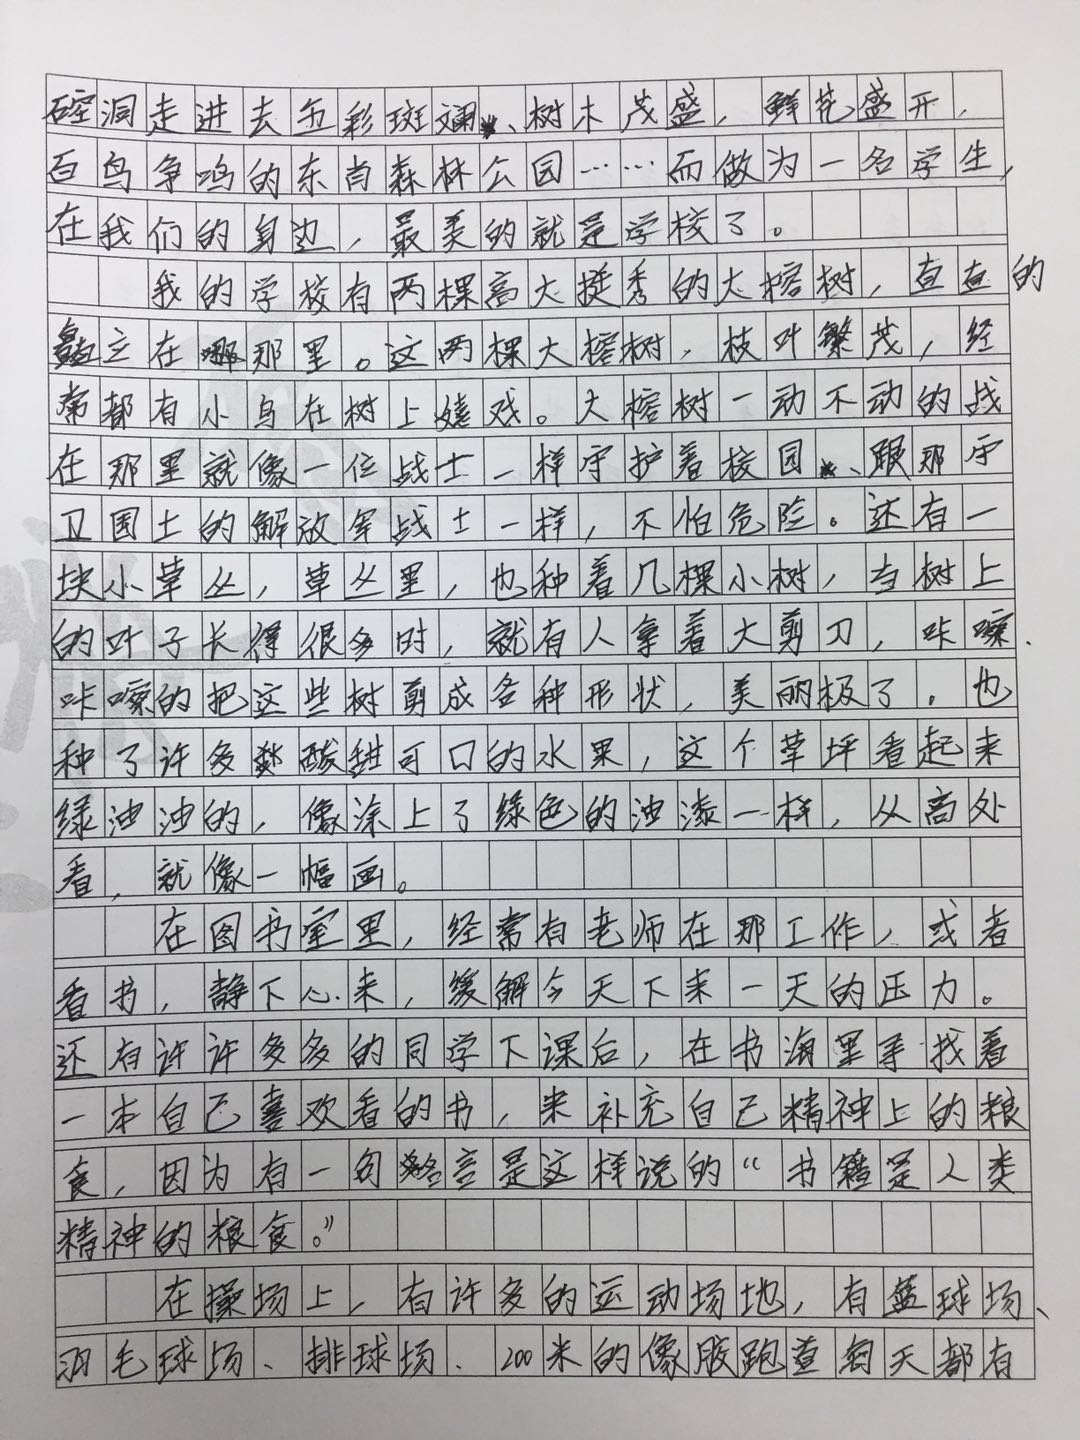 硿洞走进去五彩斑斓、树木茂盛，鲜花盛开，
百鸟争鸣的东肖森林公园……而做为一名学生，
在我们的身边，最美的就是学校了。
我的学校有两棵高大挺秀的大榕树，直直的
矗立在那里。这两棵大榕树，枝叶繁茂，经
常都有小鸟在树上嬉戏。大榕树一动不动的战
在那里就像一位战士一样守护着校园、跟那守
卫国土的解放军战士一样，不怕危险。还有一
块小草丛，草丛里，也种着几棵小树，当树上
的叶子长得很多时，就有人拿着大剪刀，咔嚓、
咔嚓的把这些树剪成各种形状，美丽极了。也
种了许多酸甜可口的水果，这个草坪看起来
绿油油的，像涂上了绿色的油漆一样，从高处
看，就像一幅画。
在图书室里，经常有老师在那工作，或者
看书，静下心来，缓解今天下来一天的压力。
还有许许多多的同学下课后，在书海里寻找着
一本自己喜欢看的书，来补充自己精神上的粮
食，因为有一句名言是这样说的“书籍是人类
精神的粮食。”
在操场上，有许多的运动场地，有篮球场、
羽毛球场、排球场、200米的像胶跑道每天都有